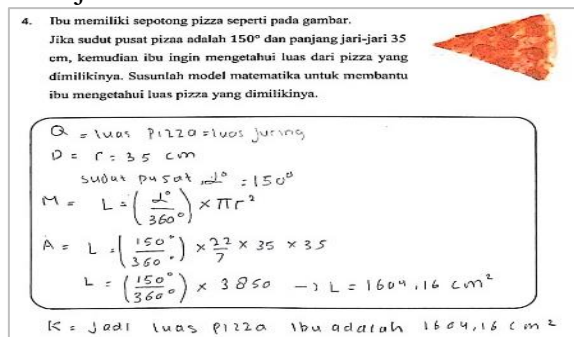 4. Ibu memiliki sepotong pizza seperti pada gambar.
Jika sudut pusat pizaa adalah 150° dan panjang jari-jari 35
cm, kemudian ibu ingin mengetahui luas dari pizza yang
dimilikinya. Susunlah model matematika untuk membantu
ibu mengetahui luas pizza yang dimilikinya.
Q = luas pizza = luas juring
D = r = 35 cm
sudut pusat α° = 150°
M = L = (α°/360°) × πr²
A = L = (150°/360°) × 22/7 × 35 × 35
L = (150°/360°) × 3850 → L = 1604,16 cm²
K = Jadi luas pizza ibu adalah 1604,16 cm²